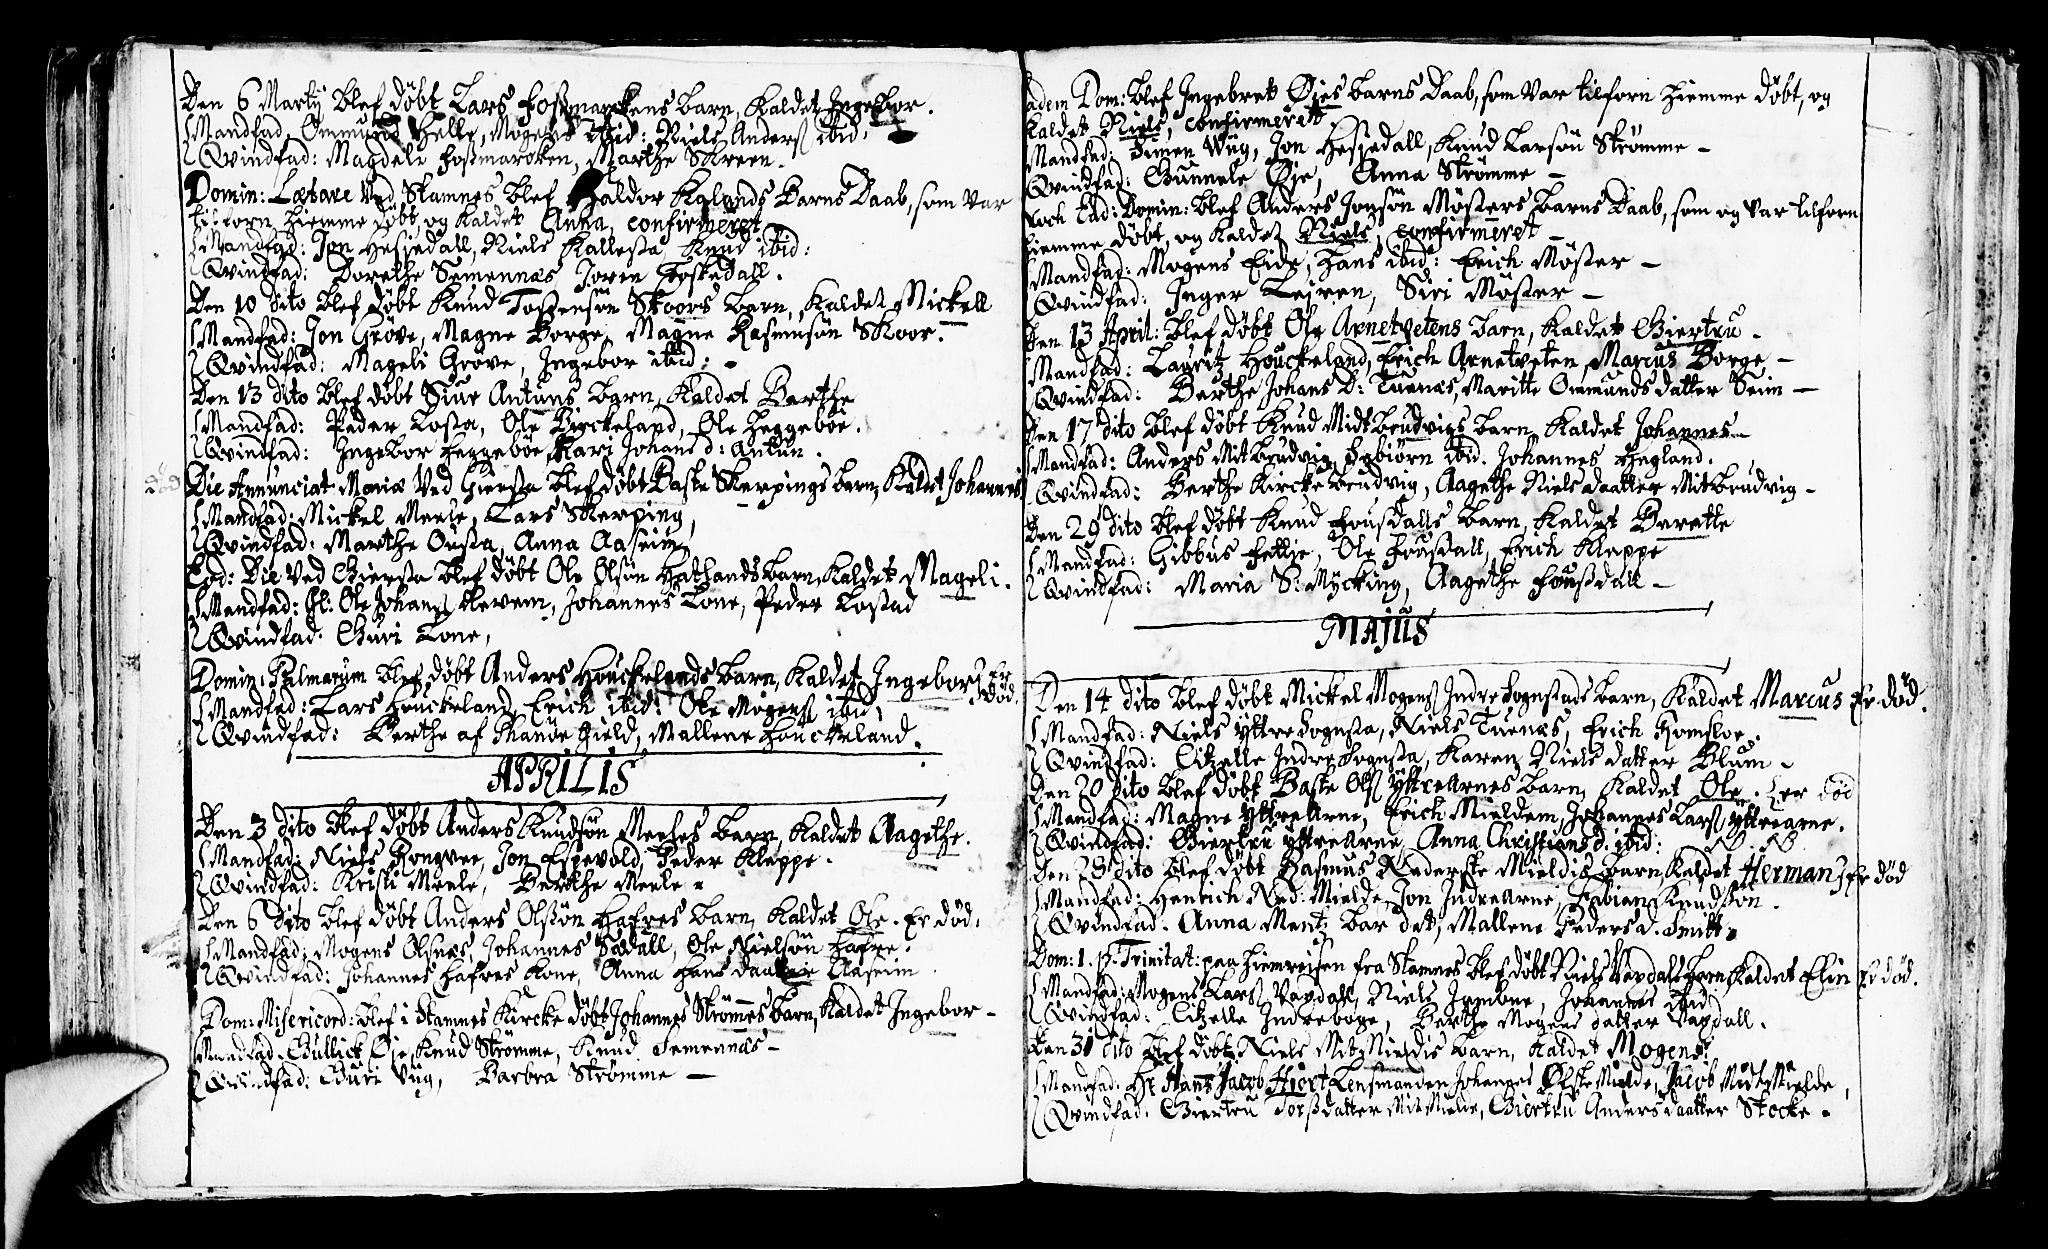 Den 6 Martij blef döbt Lars Fossmarckens barn, kaldet Ingebor.
Mandfad. Ommund Helle, Mogens ibid: Niels Anderss ibid.
Qvindfad: Magdeli Fossmarcken, Marthe Skreen.
Domin: Lætare ved Stamnes blef Haldor Kalands barns Daab, som var
tilforn hiemme döbt, og kaldet Anna, confirmeret
Mandfad: Jon Hessiedall, Niels Kallesta, Knud ibid:
Qvindfad: Dorethe Semennæs, Joren
Den 10 dito blef döbt Knud Tostensön Skoors barn, kaldet Mickell
Mandfad: Jon Gröve, Magne Borge, Magne Rasmusön Skoor.
Qvindfad: Mageli Gröve, Ingebor ibid:
Den 13 dito blef döbt Siur Antuns barn, kaldet Barthe
Mandfad: Peder Losta, Ole Birckeland, Ole Heggeböe.
Qvindfad: Ingebor Heggeböe, Kari Johans d: Antun.
död Die Annunciat Mariæ ved Giersta blef döbt Baste Skerpings barn, kaldet Johannes
Mandfad: Mickel Meele, Lars Skerping,
Qvindfad: Marthe Ousta, Anna Aaseim,
Eod: Die ved Giersta blef döbt Ole Olsön Hatlands barn, kaldet Mageli.
Mandfad: Ole Johans Olevem, Johannes Lone, Peder Lostad
Qvindfad: Guri Lone,
Domin: Palmarum blef döbt Anders Houckelands barn, kaldet Ingebor Er död.
Mandfad: Lars Houckeland, Erich ibid: Ole Mogenss ibid,
Qvindfad: Berthe af Skanöe Gield, Mallene Houckeland.
APRILIS
Den 3 dito blef döbt Anders Knudsön Meeles barn, kaldet Aagethe.
Mandfad: Niels Rongvee, Jon Espevold, Peder Kleppe.
Qvindfad: Kristi Meele, Berthe Meele
Den 6 dito blef döbt Anders Olssön Hafres barn, kaldet Ole. Er död.
Mandfad: Mogens Olsnæs, Johannes Dadall, Ole Nielsön Hafre.
Qvindfad: Johannes Hafres Kone, Anna Hans daatter Aaseim
Dom: Misericord: blef i Stamnes Kircke döbt Johannes Strömmes barn, kaldet Ingebor
Mandfad. Gullick Öie, Knud Strömme, Knud Semennæs
Qvindfad: Guri Vüg, Barbra Strömme
adem Dom: blef Ingebret Öies barns Daab, som var tilforn hiemme döbt, og
kaldet Niels, confirmeret
Mandfad: Simen Wüg, Jon Hessedall, Knud Larsön Strömme
Qvindfad: Gunnele Öie, Anna Strömme
Noch Ead: Domin: blef Anders Jonsön Mösters barns Daab, som og var tilforn
hiemme döbt, og kaldet Niels, confirmeret
Mandfad: Mogens Eide, Hans ibid: Erich Möster
Qvindfad: Inger Leiren, Siri Möster
Den 13 April: blef döbt Ole Arnetvetens barn, kaldet Giertru.
Mandfad: Lauritz Houckeland, Erich Arnetveten, Marcus Borge
Qvindfad: Berthe Johans D: Tuenæs, Maritte Ommunds datter Seim
Den 17 dito blef döbt Knud Midtbrudvigs barn, kaldet Johannes
Mandfad: Anders Mitbrudvig, Fabiörn ibid. Johannes Hegland.
Qvindfad: Berthe Kirckebrudvig, Aagethe Niels daatter Mitbrudvig
Den 29 dito blef döbt Knud Foussdalls barn, kaldet Beratte
Mandfad: Gibbus Fettie, Ole Foussdall, Erich Kleppe
Qvindfad: Maria S: Mycking, Aagethe Foussdall
MAJUS
Den 14 dito blef döbt Mickel Mogenss Indre Fognstads barn, kaldet Marcus Er död.
Mandfad: Niels Yttre Fognsta, Niels Tuenæs, Erich Romsloe.
Qvindfad: Citzelle Indre Fognsta, Karen Niels datter Blum
Den 20 dito blef döbt Baste Olss Yttre Arnes barn, kaldet Ole. er död
Mandfad: Magne Yttre Arne, Erich Mieldem, Johannes Larss Yttrearne.
Qvindfad: Giertru Yttre Arne, Anna Christians d. ibid:
Den 28 dito blef döbt Rasmus Nederste Mieldis barn, kaldet Herman Er död
Mandfad: Henrich Ned: Mielde, Jon Indre Arne, Fabian Knudsön.
Qvindfad. Anna Mentz bar det, Mallene Peders d. Smitt
Dom: 1. p. Trinitat: paa hiemreisen fra Stamnes blef döbt Niels Vaxdals barn, kaldet Elin Er död.
Mandfad: Mogens Larss Vaxdall, Niels, Johannes ibid
Qvindfad: Citzelle Indreboge, Berthe Mogens datter Vaxdall.
Den 31 dito blef döbt Niels Mit Mieldis barn, kaldet Mogens.
Mandfad: Hr Hans Jacob Hiort Lensmanden Johannes Öfste Mielde, Jacob Midt Mielde,
Qvindfad: Giertru Torssdatter Mit Mielde, Giertru Anders daatter Stocke.